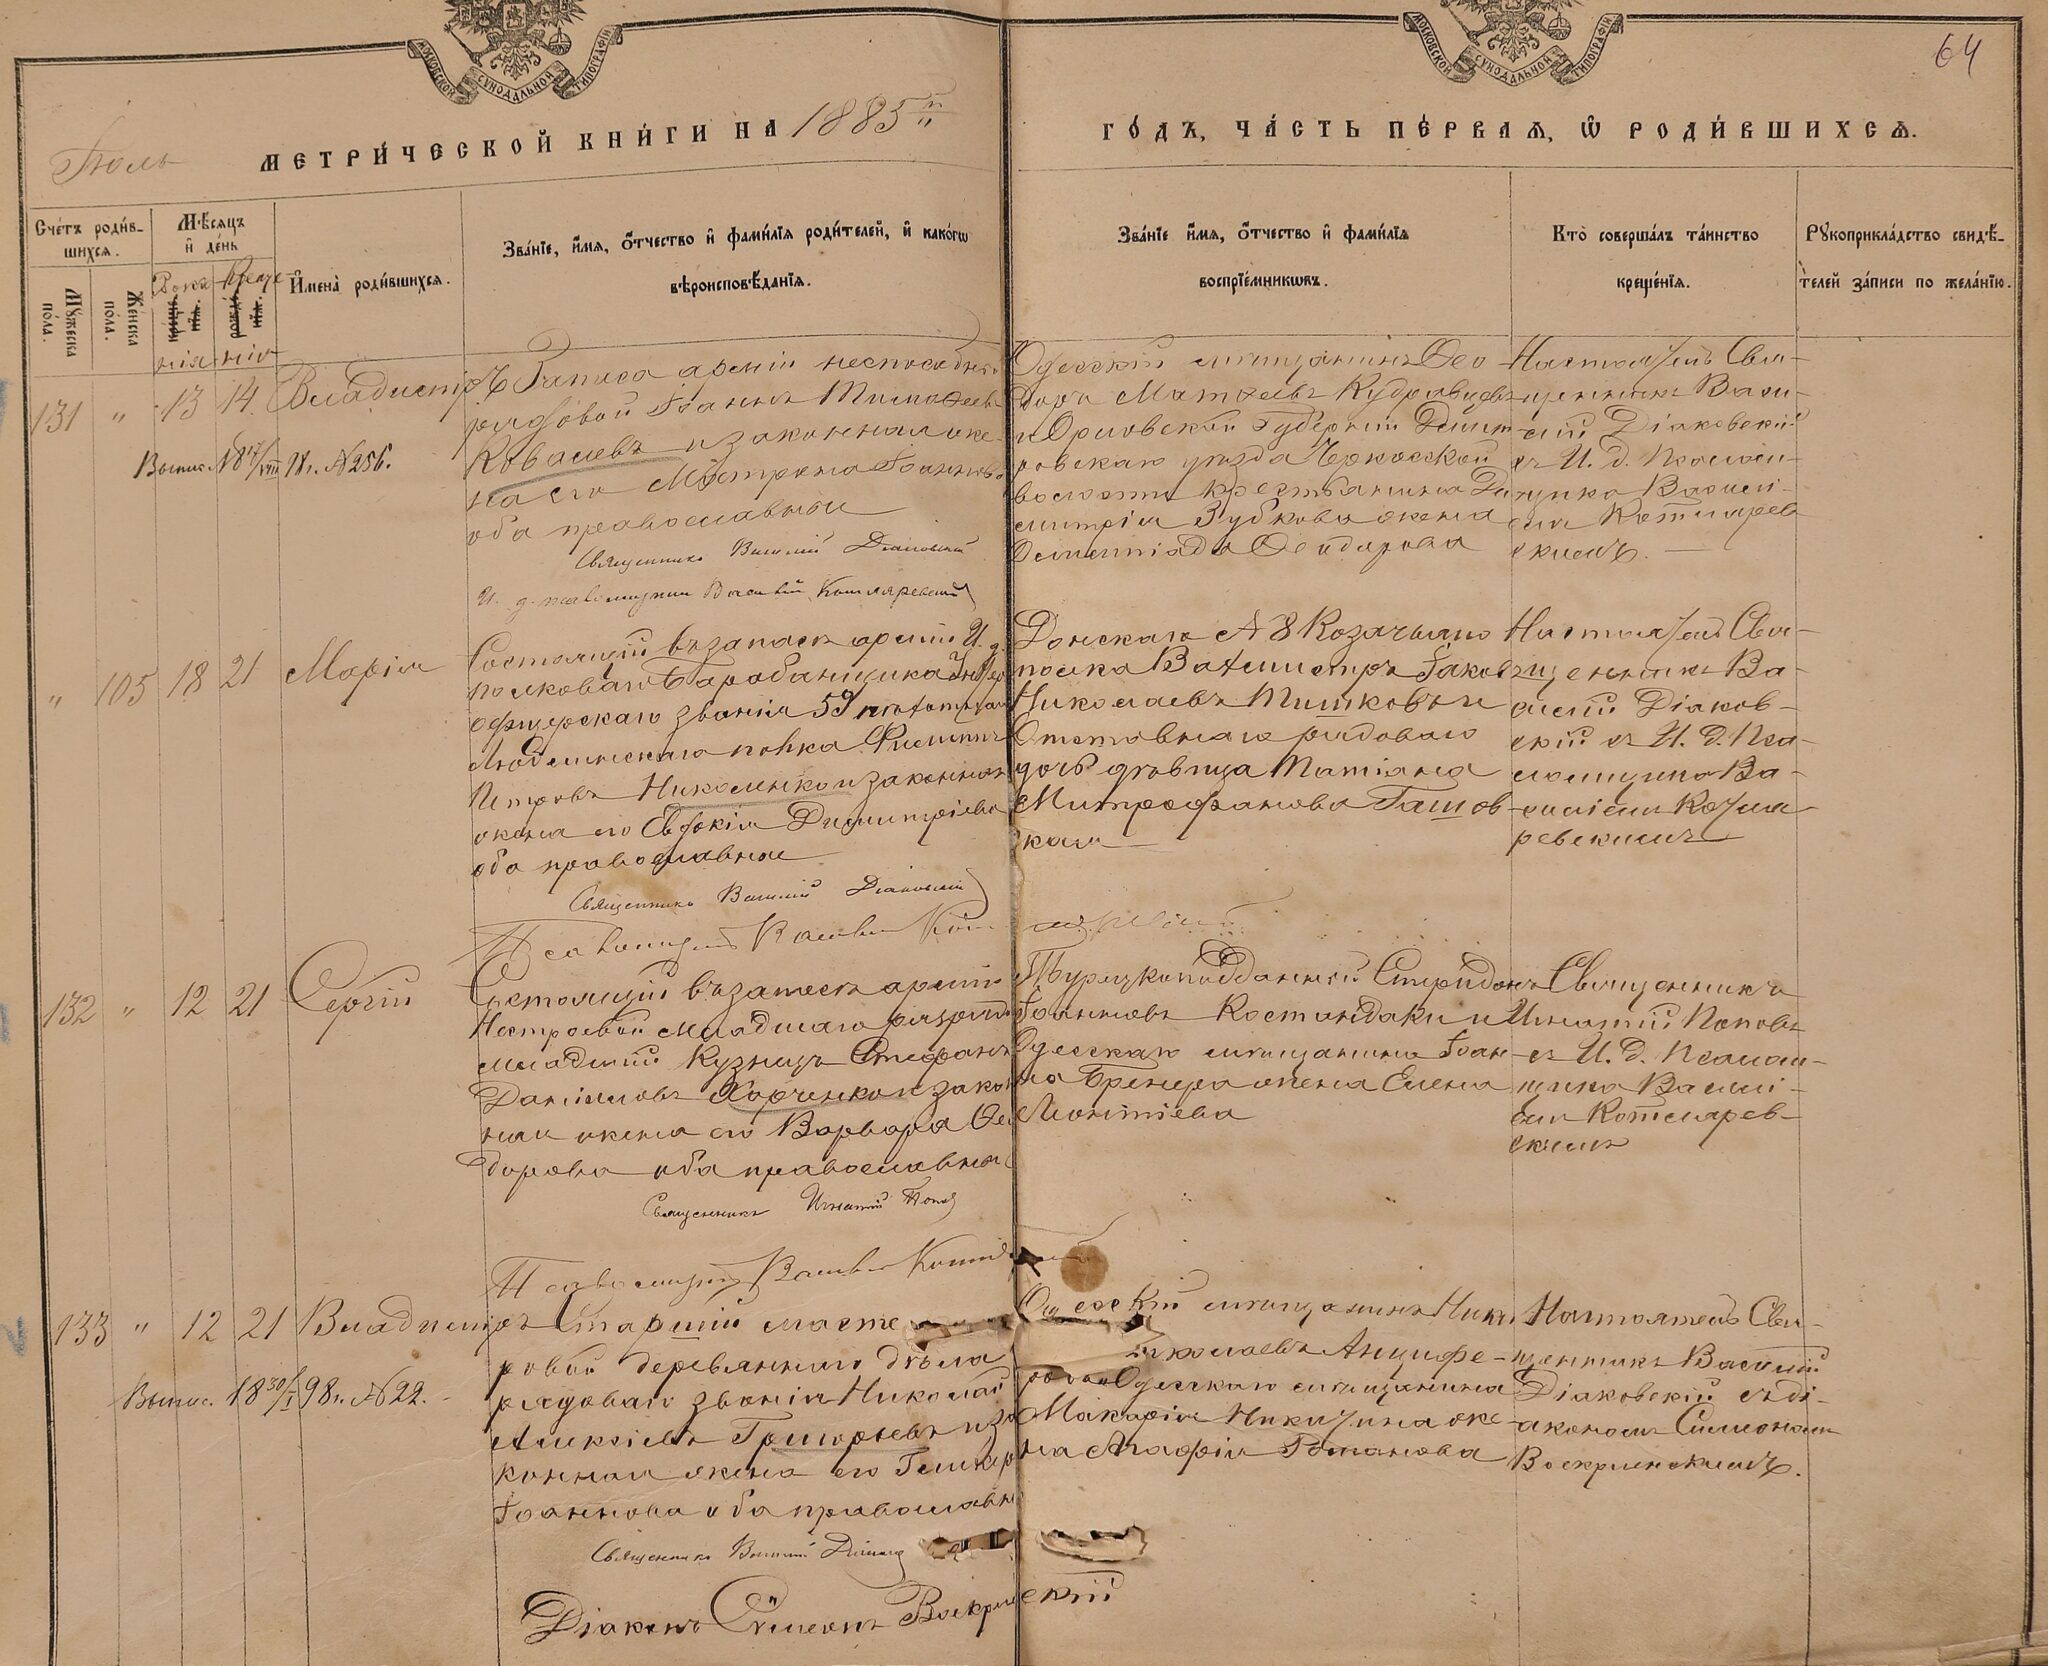 МОСКОВСКОЙ СУНОДАЛЬНОЙ ТИПОГРАФІИ
МОСКОВСКОЙ СУНОДАЛЬНОЙ ТИПОГРАФІИ
64
Іюль
МЕТРИ́ЧЕСКОЙ КНИ́ГИ НА 1885й
ГО́ДЪ, ЧА́СТЬ ПЕ́РВАЯ, Ѡ РОДИ́ВШИХСЯ.
Сче́тъ роди́в-
шихся.
Мꙋжеска
по́ла.
Же́нска
по́ла.
Мѣ́сяцъ
и҆ де́нь
И҆мена̀ роди́вшихся.
Зва́нїе, и҆́мя, о҆́тчество и҆ фами́лїя роди́телей, и҆ како́гѡ
вѣроисповѣ́данїя.
Зва́нїе и҆́мя, о҆́тчество и҆ фами́лїя
воспрїе́мникѡвъ.
Кто̀ соверша́лъ та́инство
креще́нїя.
Рꙋкоприкла́дство свидѣ́-
телей за́писи по жела́нїю.
131 " 13 14 Владиміръ
Запаса арміи неспособный
рядовой Іоаннъ Тимофеевъ
Ковалевъ и законная же-
на его Матрона Іоаннова
оба православные
Священникъ Василій Діаковскій
И. д. псаломщика Василій Котляревскій
Одесскій мѣщанинъ Фео
доръ Матвеевъ Кудрявцевъ
и Орловской губерніи Дмит
ровскаго уѣзда
волости крестьянина Ди
митрія Зубкова жена
Олимпіада Феодорова
Настоятель Свя-
щенникъ Васи-
лій Діаковскій
съ И. д. Псалом-
щика Василі-
емъ Котлярев
скимъ.
Выпис. № 256.
" 105 18 21 Марія
Состоящій въ запасѣ арміи И. д.
полковаго барабанщика Унтеръ
офицерскаго званія 59 пѣхотнаго
Люблинскаго полка Филиппъ
Петровъ Николенко и законная
жена его Евдокія Димитріева
оба православные
Священникъ Василій Діаковскій
Псаломщикъ Василій Котляревскій
Донскаго № 8 Козачьяго
полка Вахмистръ Іаковъ
Николаевъ Тишковъ и
Отставнаго рядоваго
дочь дѣвица Татіана
Митрофанова Гашов-
ская
Настоятель Свя-
щенникъ Ва-
силій Діаков-
скій съ И. д. Пса-
ломщика Ва-
силіемъ Котля-
ревскимъ
132 " 12 21 Сергій
Состоящій въ запасѣ арміи
Нестроевой младшаго разряда
младшій кузнецъ Стефанъ
Даніиловъ Харченко и закон
ная жена его Варвара Фео
дорова оба православные
Священникъ Игнатій Поповъ
Псаломщикъ Василій Котляревскій
Турецкоподданный Спиридонъ
Іоанновъ Костандаки и
Одесскаго мѣщанина Іоан-
на Бренера жена Елена
Леонтіева
Священникъ
Игнатій Поповъ
съ И. д. Псалом-
щика Василі-
емъ Котлярев-
скимъ
133 " 12 21 Владиміръ
Старшій масте
ровой деревяннаго дѣла
рядоваго званія Николай
Алексіевъ Григорьевъ и за
конная жена его Гликерія
Іоаннова оба православные
Священникъ Василій Діаковскій
Діаконъ Симеонъ Воскресенскій
Одесскій мѣщанинъ Ник
Николаевъ Анцифе-
ровъ и Одесскаго мѣщанина
Макарія Никитина же-
на Агафія Романова
Настоятель Свя-
щенникъ Василій
Діаковскій съ ді-
акономъ Симеономъ
Воскресенскимъ.
Выпис. 1898 г. № 22.